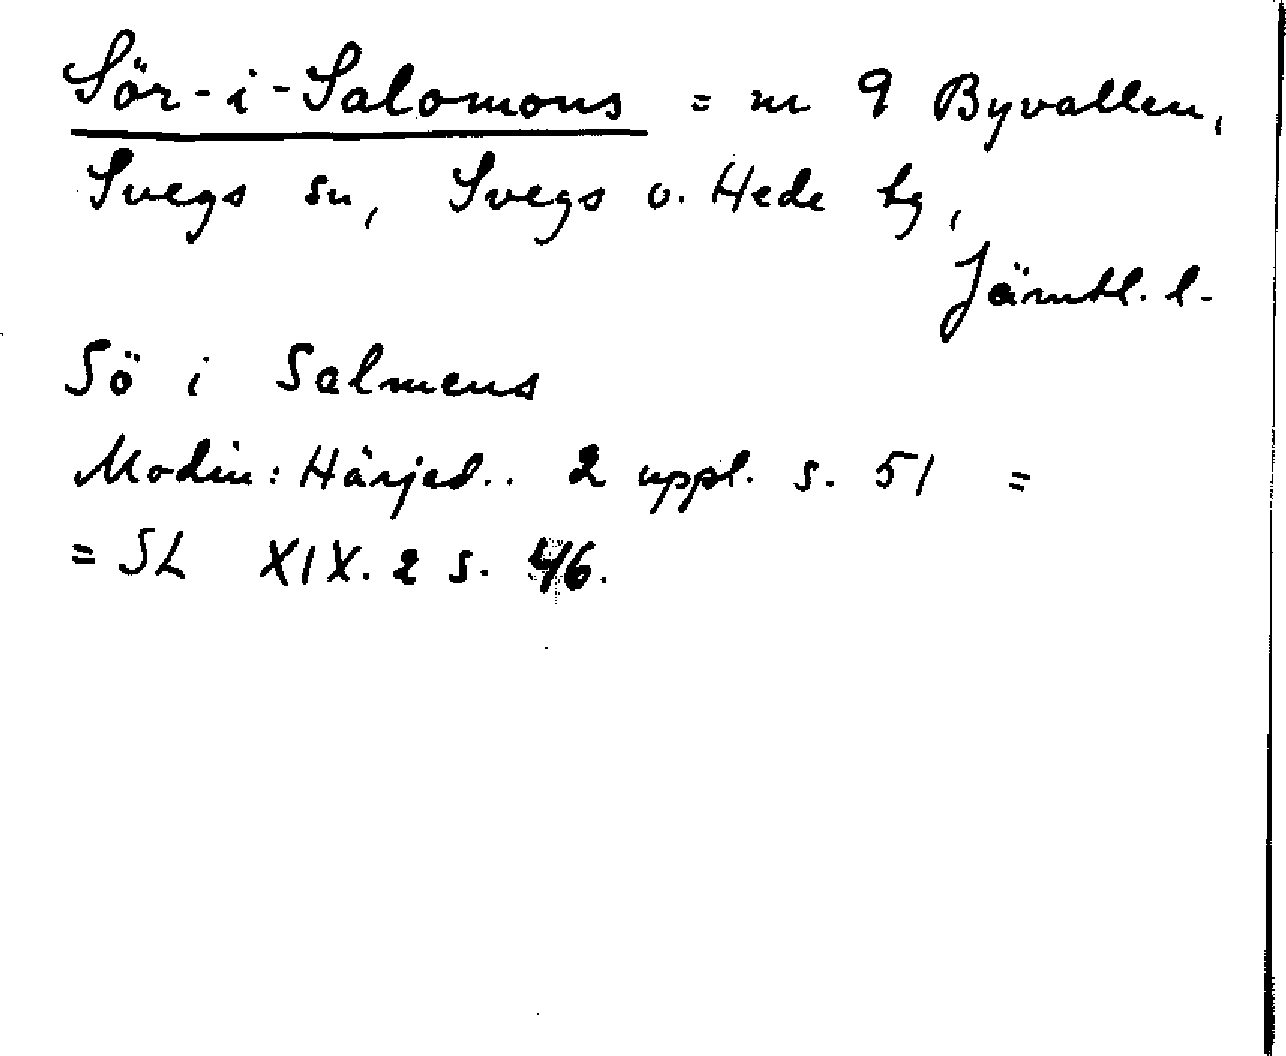 Sör-i-Salomons = nr 9 Byvallen,
Svegs sn, Svegs o. Hede tg,
Jämtl. l.
Sö i Salmens
Modin: Härjed.. 2 uppl. s. 51 =
= SL XIX. 2 s. 46.